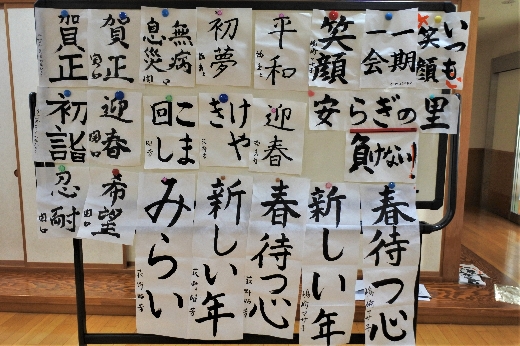 いつも
笑顔
一期
一会
笑顔
平和
初夢
無病
息災
賀正
賀正
里
らぎの
安
負けない!
迎春
けや
き
こま
回し
迎春
田口
初詣
春待つ心
新しい年
春待つ心
新しい年
みらい
希望
田口
忍耐
田口